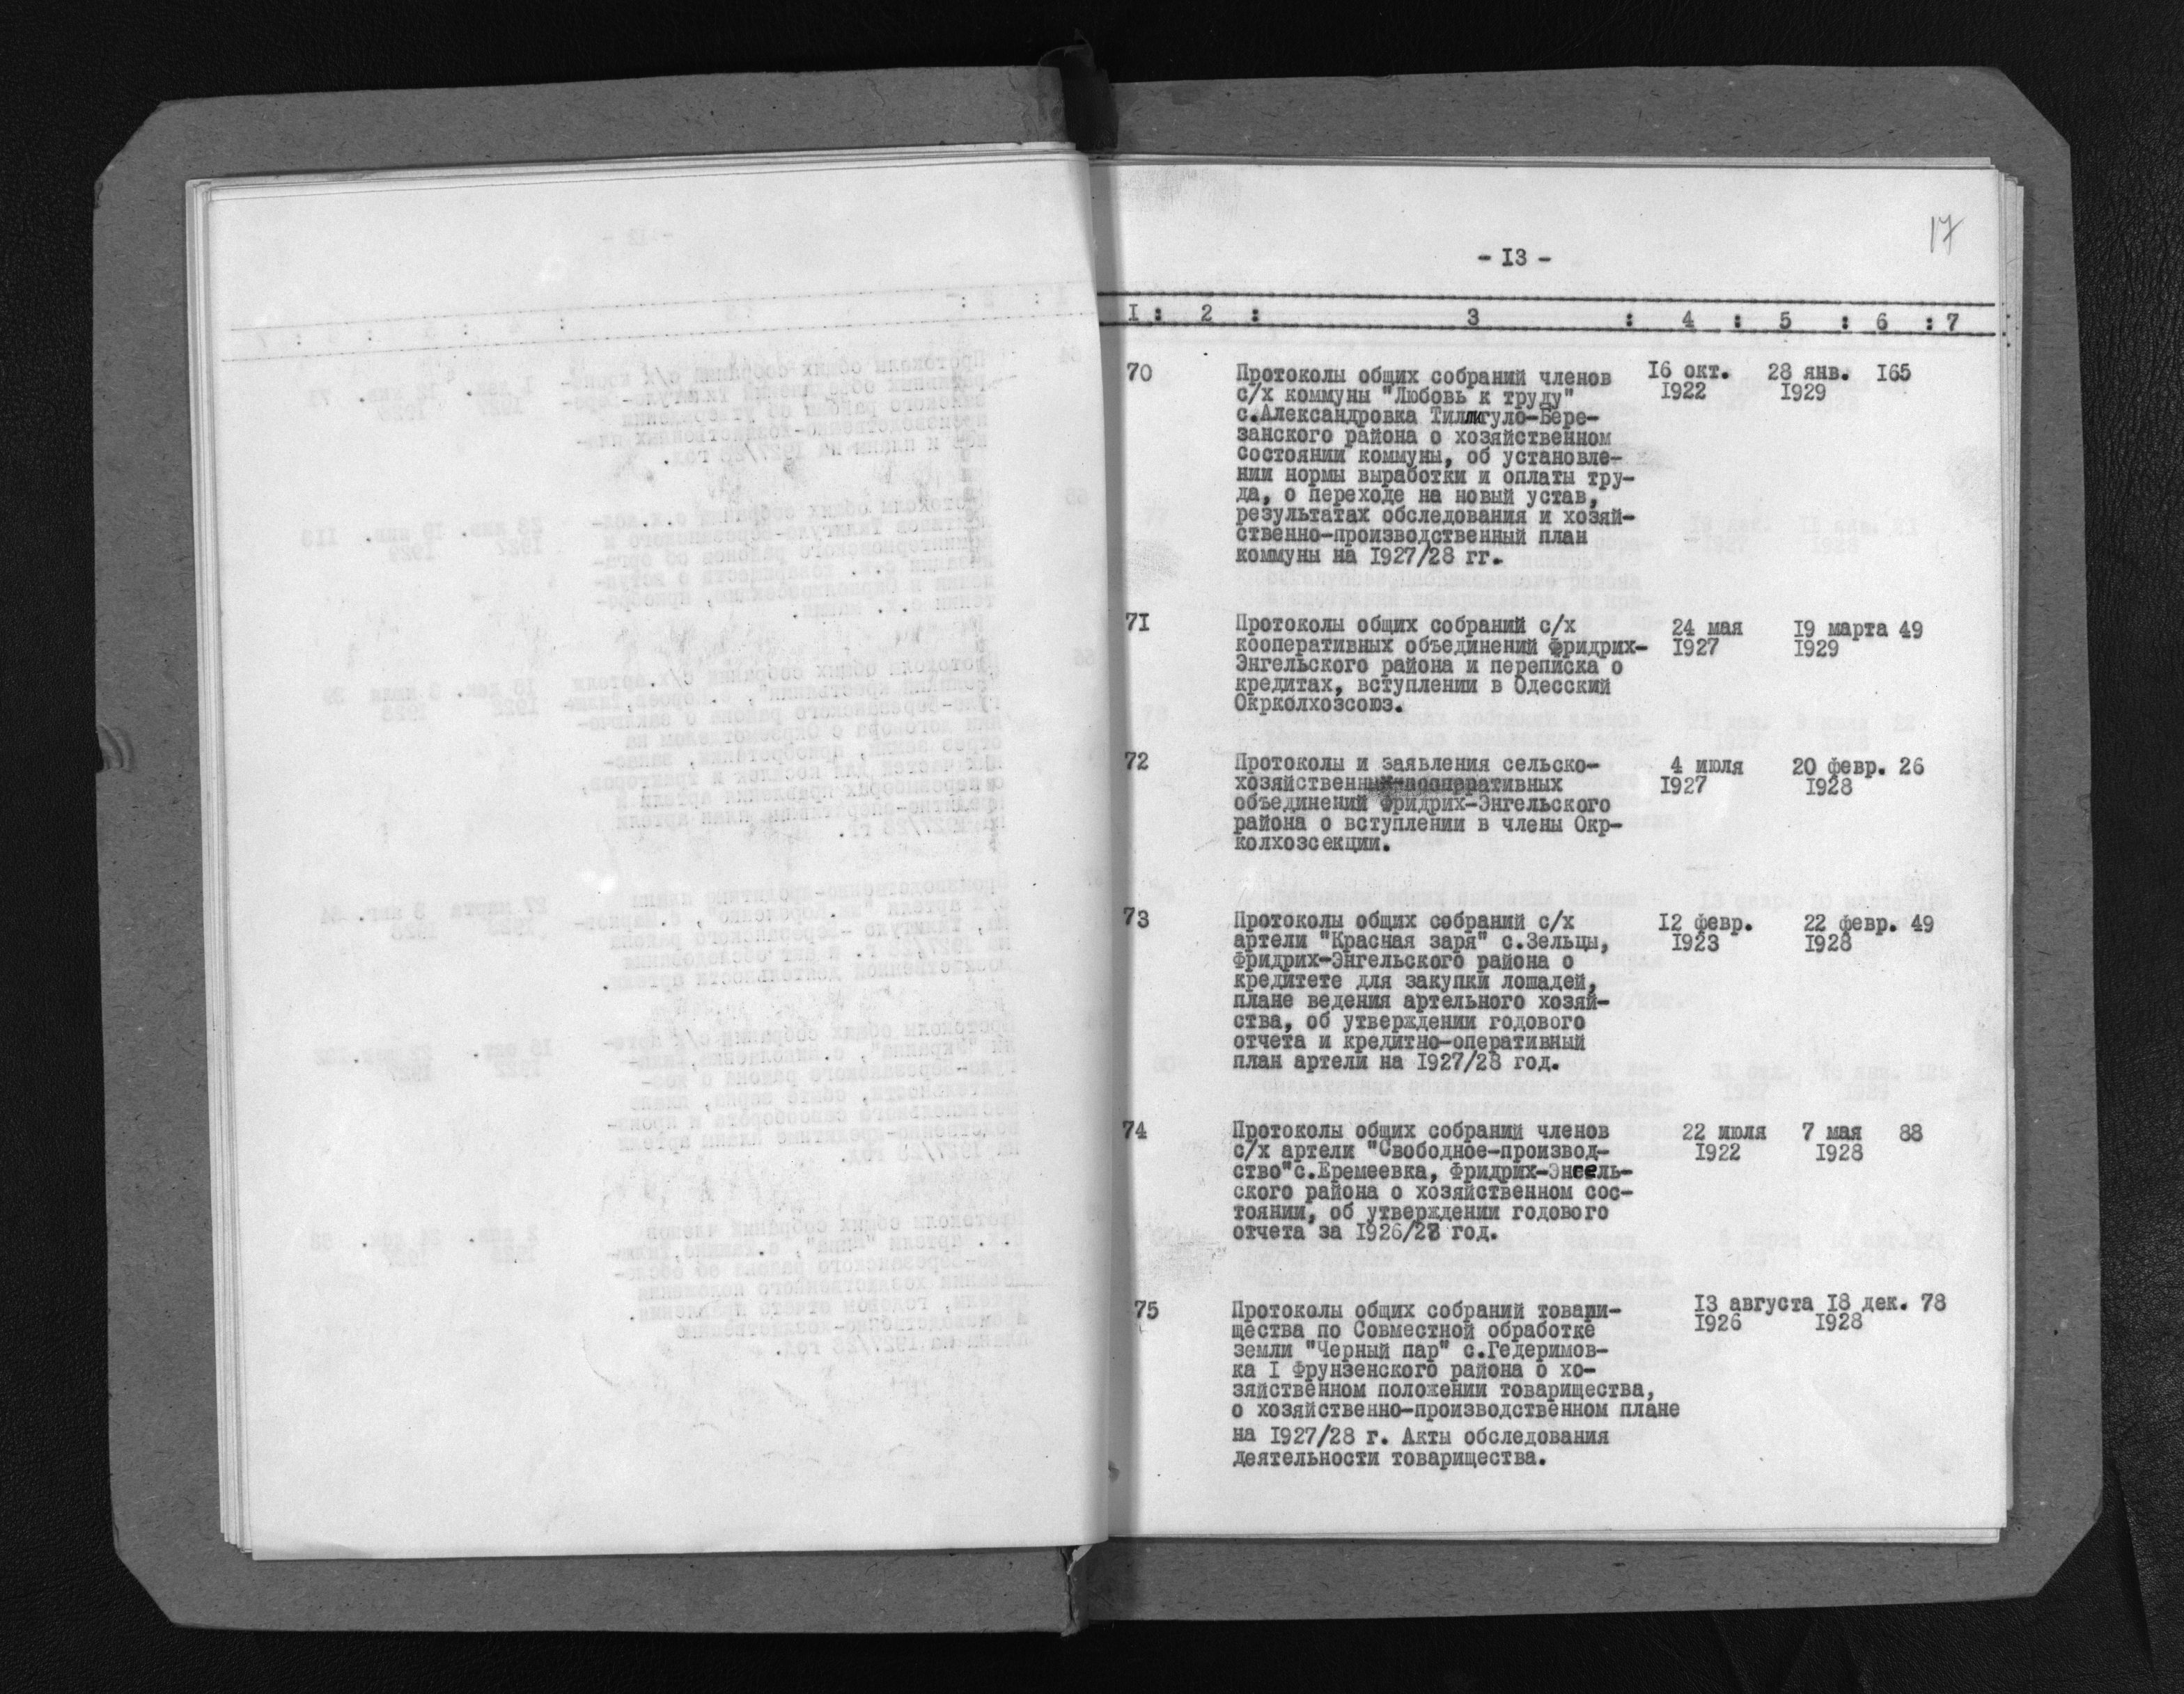 17
- I3 -
I : 2 : 3 : 4 : 5 : 6 : 7
70 Протоколы общих собраний членов I6 окт. 28 янв. I65
с/х коммуны "Любовь к труду" I922 I929
с.Александровка Тилигуло-Бере-
занского района о хозяйственном
состоянии коммуны, об установле-
нии нормы выработки и оплаты тру-
да, о переходе на новый устав,
результатах обследования и хозяй-
ственно-производственный план
коммуны на I927/28 гг.
7I Протоколы общих собраний с/х 24 мая I9 марта 49
кооперативных объединений Фридрих- I927 I929
Энгельского района и переписка о
кредитах, вступлении в Одесский
Окрколхозсоюз.
72 Протоколы и заявления сельско- 4 июля 20 февр. 26
хозяйственных-кооперативных I927 I928
объединений Фридрих-Энгельского
района о вступлении в члены Окр-
колхозсекции.
73 Протоколы общих собраний с/х I2 февр. 22 февр. 49
артели "Красная заря" с.Зельцы, I923 I928
Фридрих-Энгельского района о
кредитете для закупки лошадей,
плане ведения артельного хозяй-
ства, об утверждении годового
отчета и кредитно-оперативный
план артели на I927/28 год.
74 Протоколы общих собраний членов 22 июля 7 мая 88
с/х артели "Свободное-производ- I922 I928
ство"с.Еремеевка, Фридрих-Энгель-
ского района о хозяйственном сос-
тоянии, об утверждении годового
отчета за год.
75 Протоколы общих собраний товари- I3 августа I8 дек. 78
щества по Совместной обработке I926 I928
земли "Черный пар" с.Гедеримов-
ка I Фрунзенского района о хо-
зяйственном положении товарищества,
о хозяйственно-производственном плане
на I927/28 г. Акты обследования
деятельности товарищества.